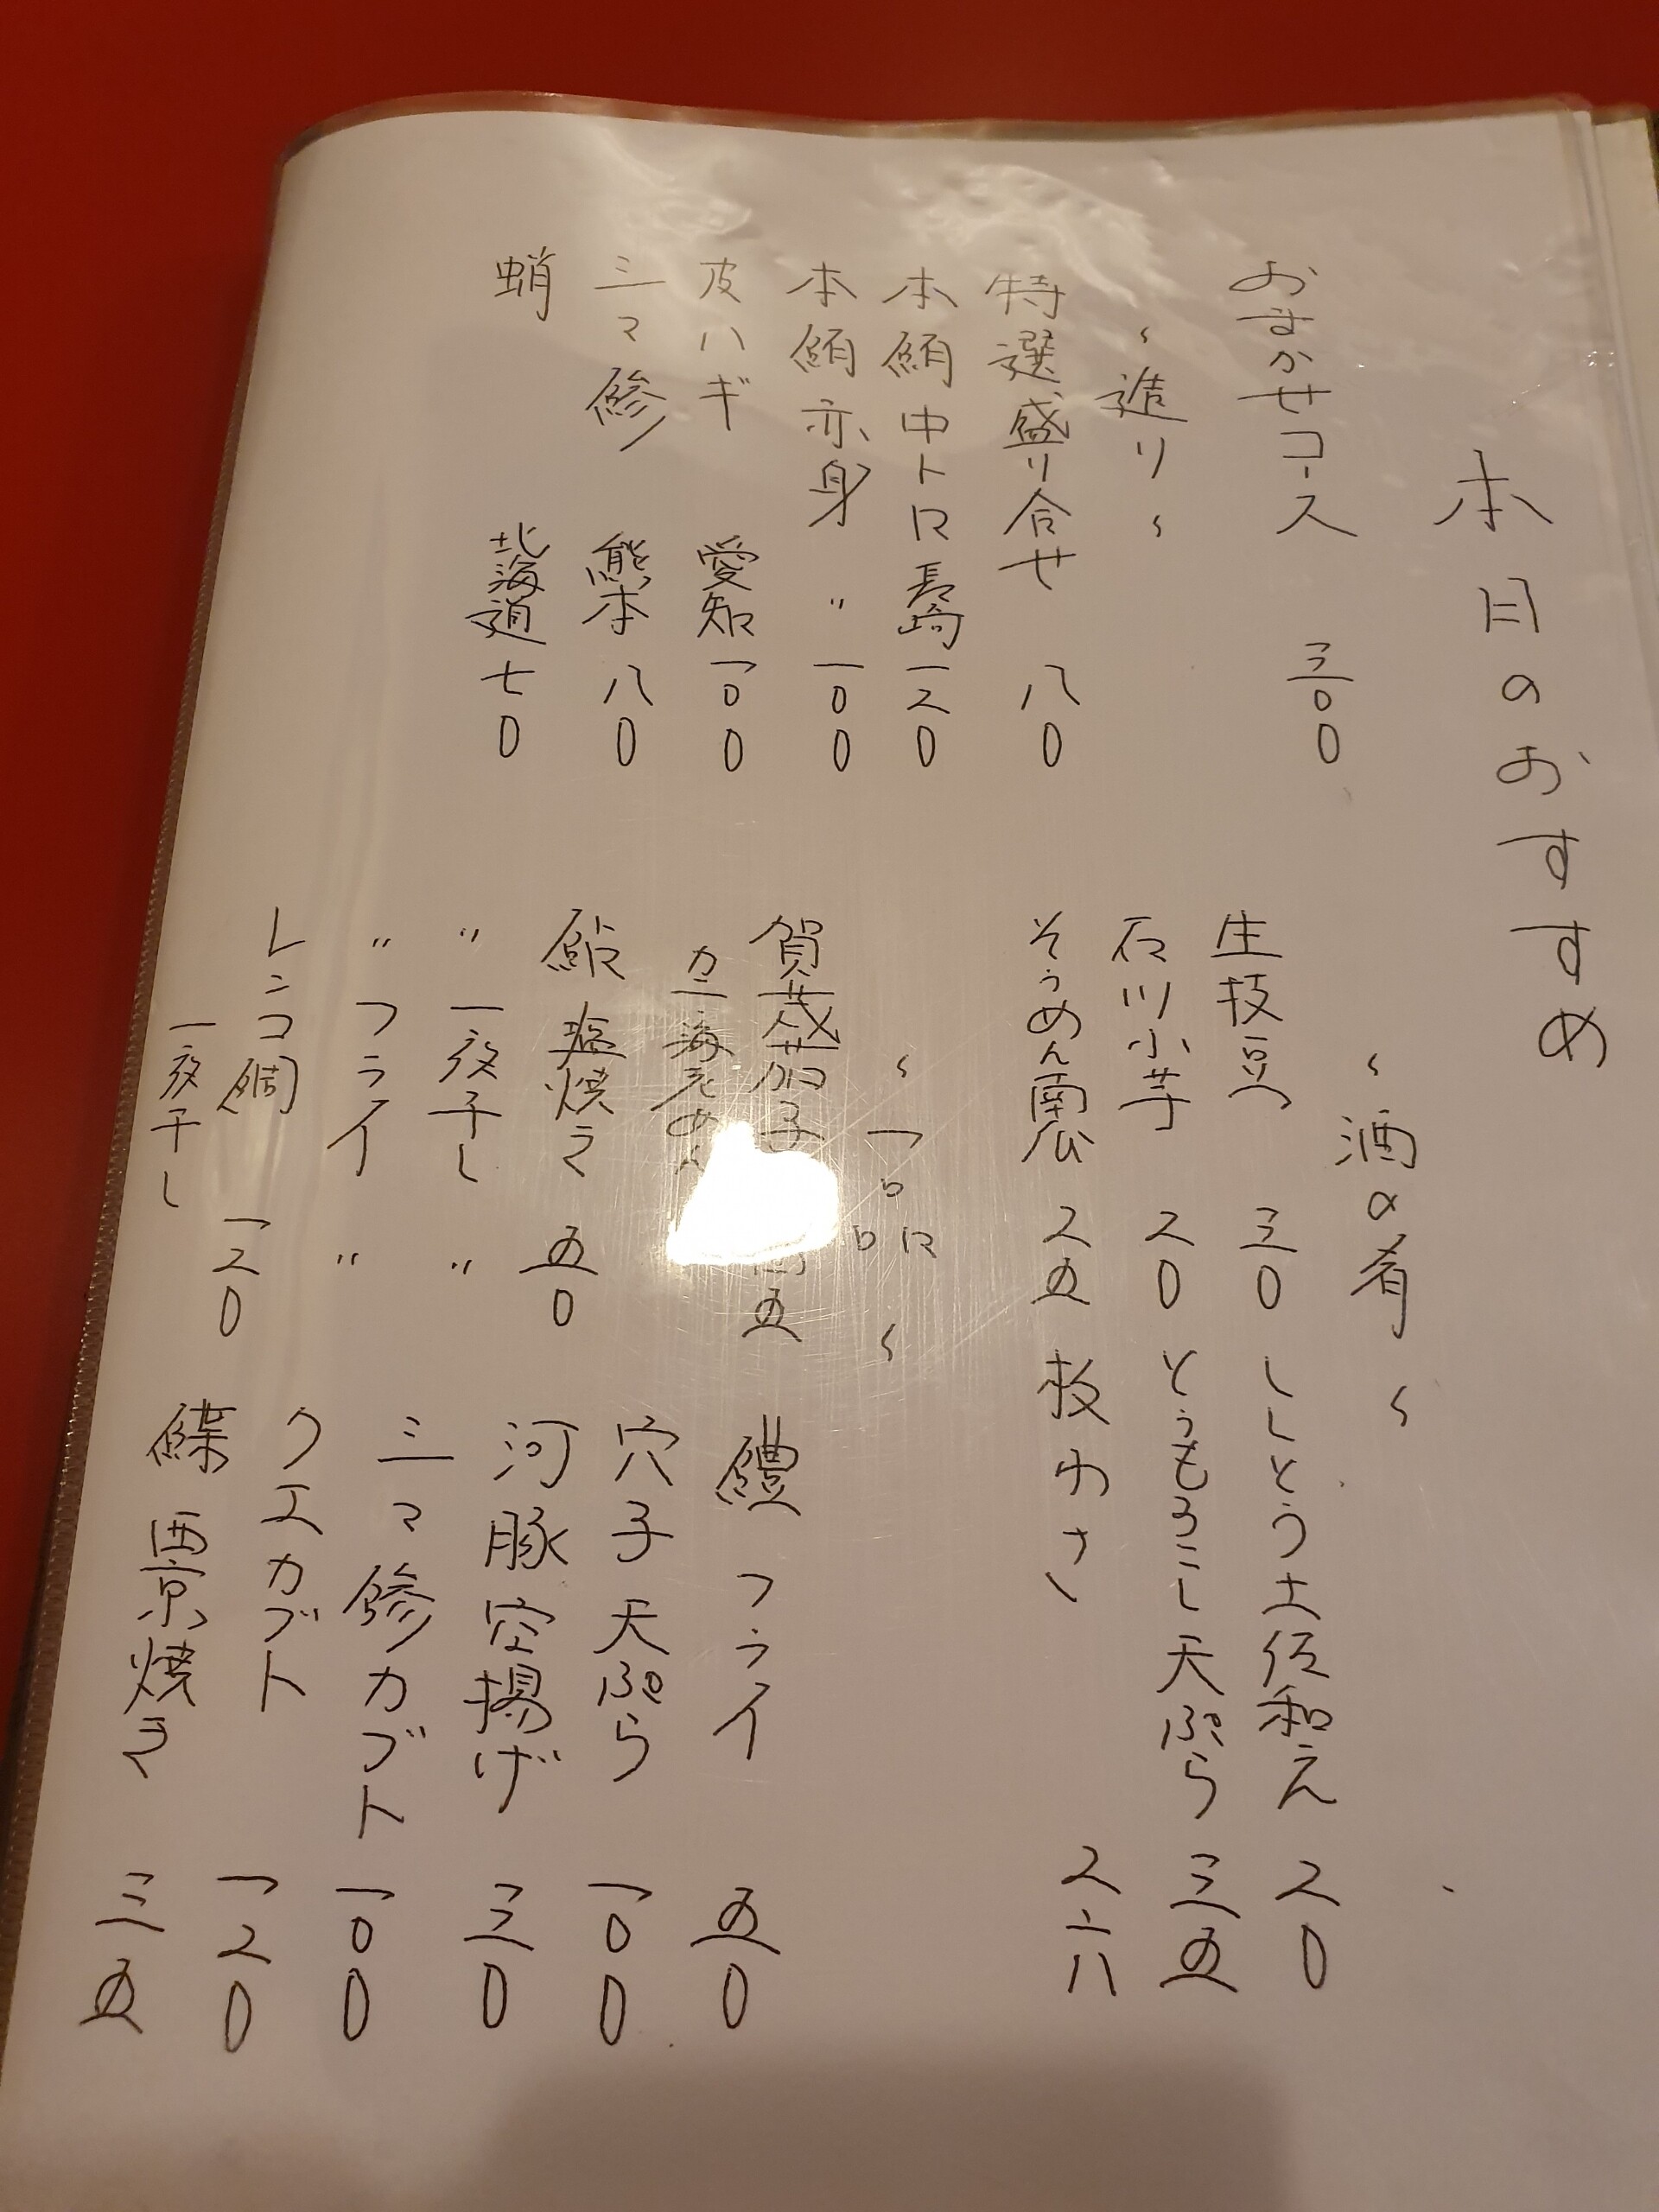 本日のおすすめ
おまかせコース 三〇〇
〜造り〜
特選盛り合せ 八〇
本鮪中トロ 長崎 一二〇
本鮪赤身 〃 一〇〇
皮ハギ 愛知 一〇〇
シマ鯵 熊本 八〇
蛸 北海道 七〇
〜酒の肴〜
生枝豆 三〇
石川小芋 二〇
そうめん南瓜 二五
ししとう土佐和え 二〇
とうもろこし天ぷら 三五
板わさ 二六
〜一品〜
賀茂茄子 五
カニ海老あん
鮎 塩焼き 五〇
〃 一夜干し 〃
〃 フライ 〃
レンコ鯛
一夜干し 一二〇
鱧 フライ 五〇
穴子天ぷら 一〇〇
河豚空揚げ 三〇
シマ鯵カブト 一〇〇
クエカブト 一二〇
鰈 西京焼き 三五